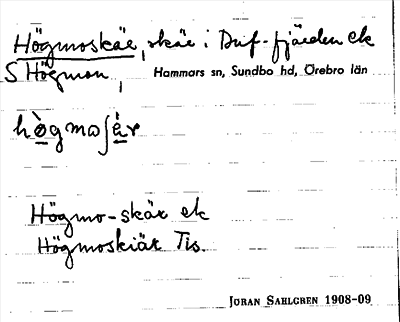 Högmoskär, skär i Duf-fjärden ek
S Högmon, Hammars sn, Sundbo hd, Örebro län
hògmoʃè̱r
Högmo-skär ek
Högmoskiär Tis.
JÖRAN SAHLGREN 1908-09